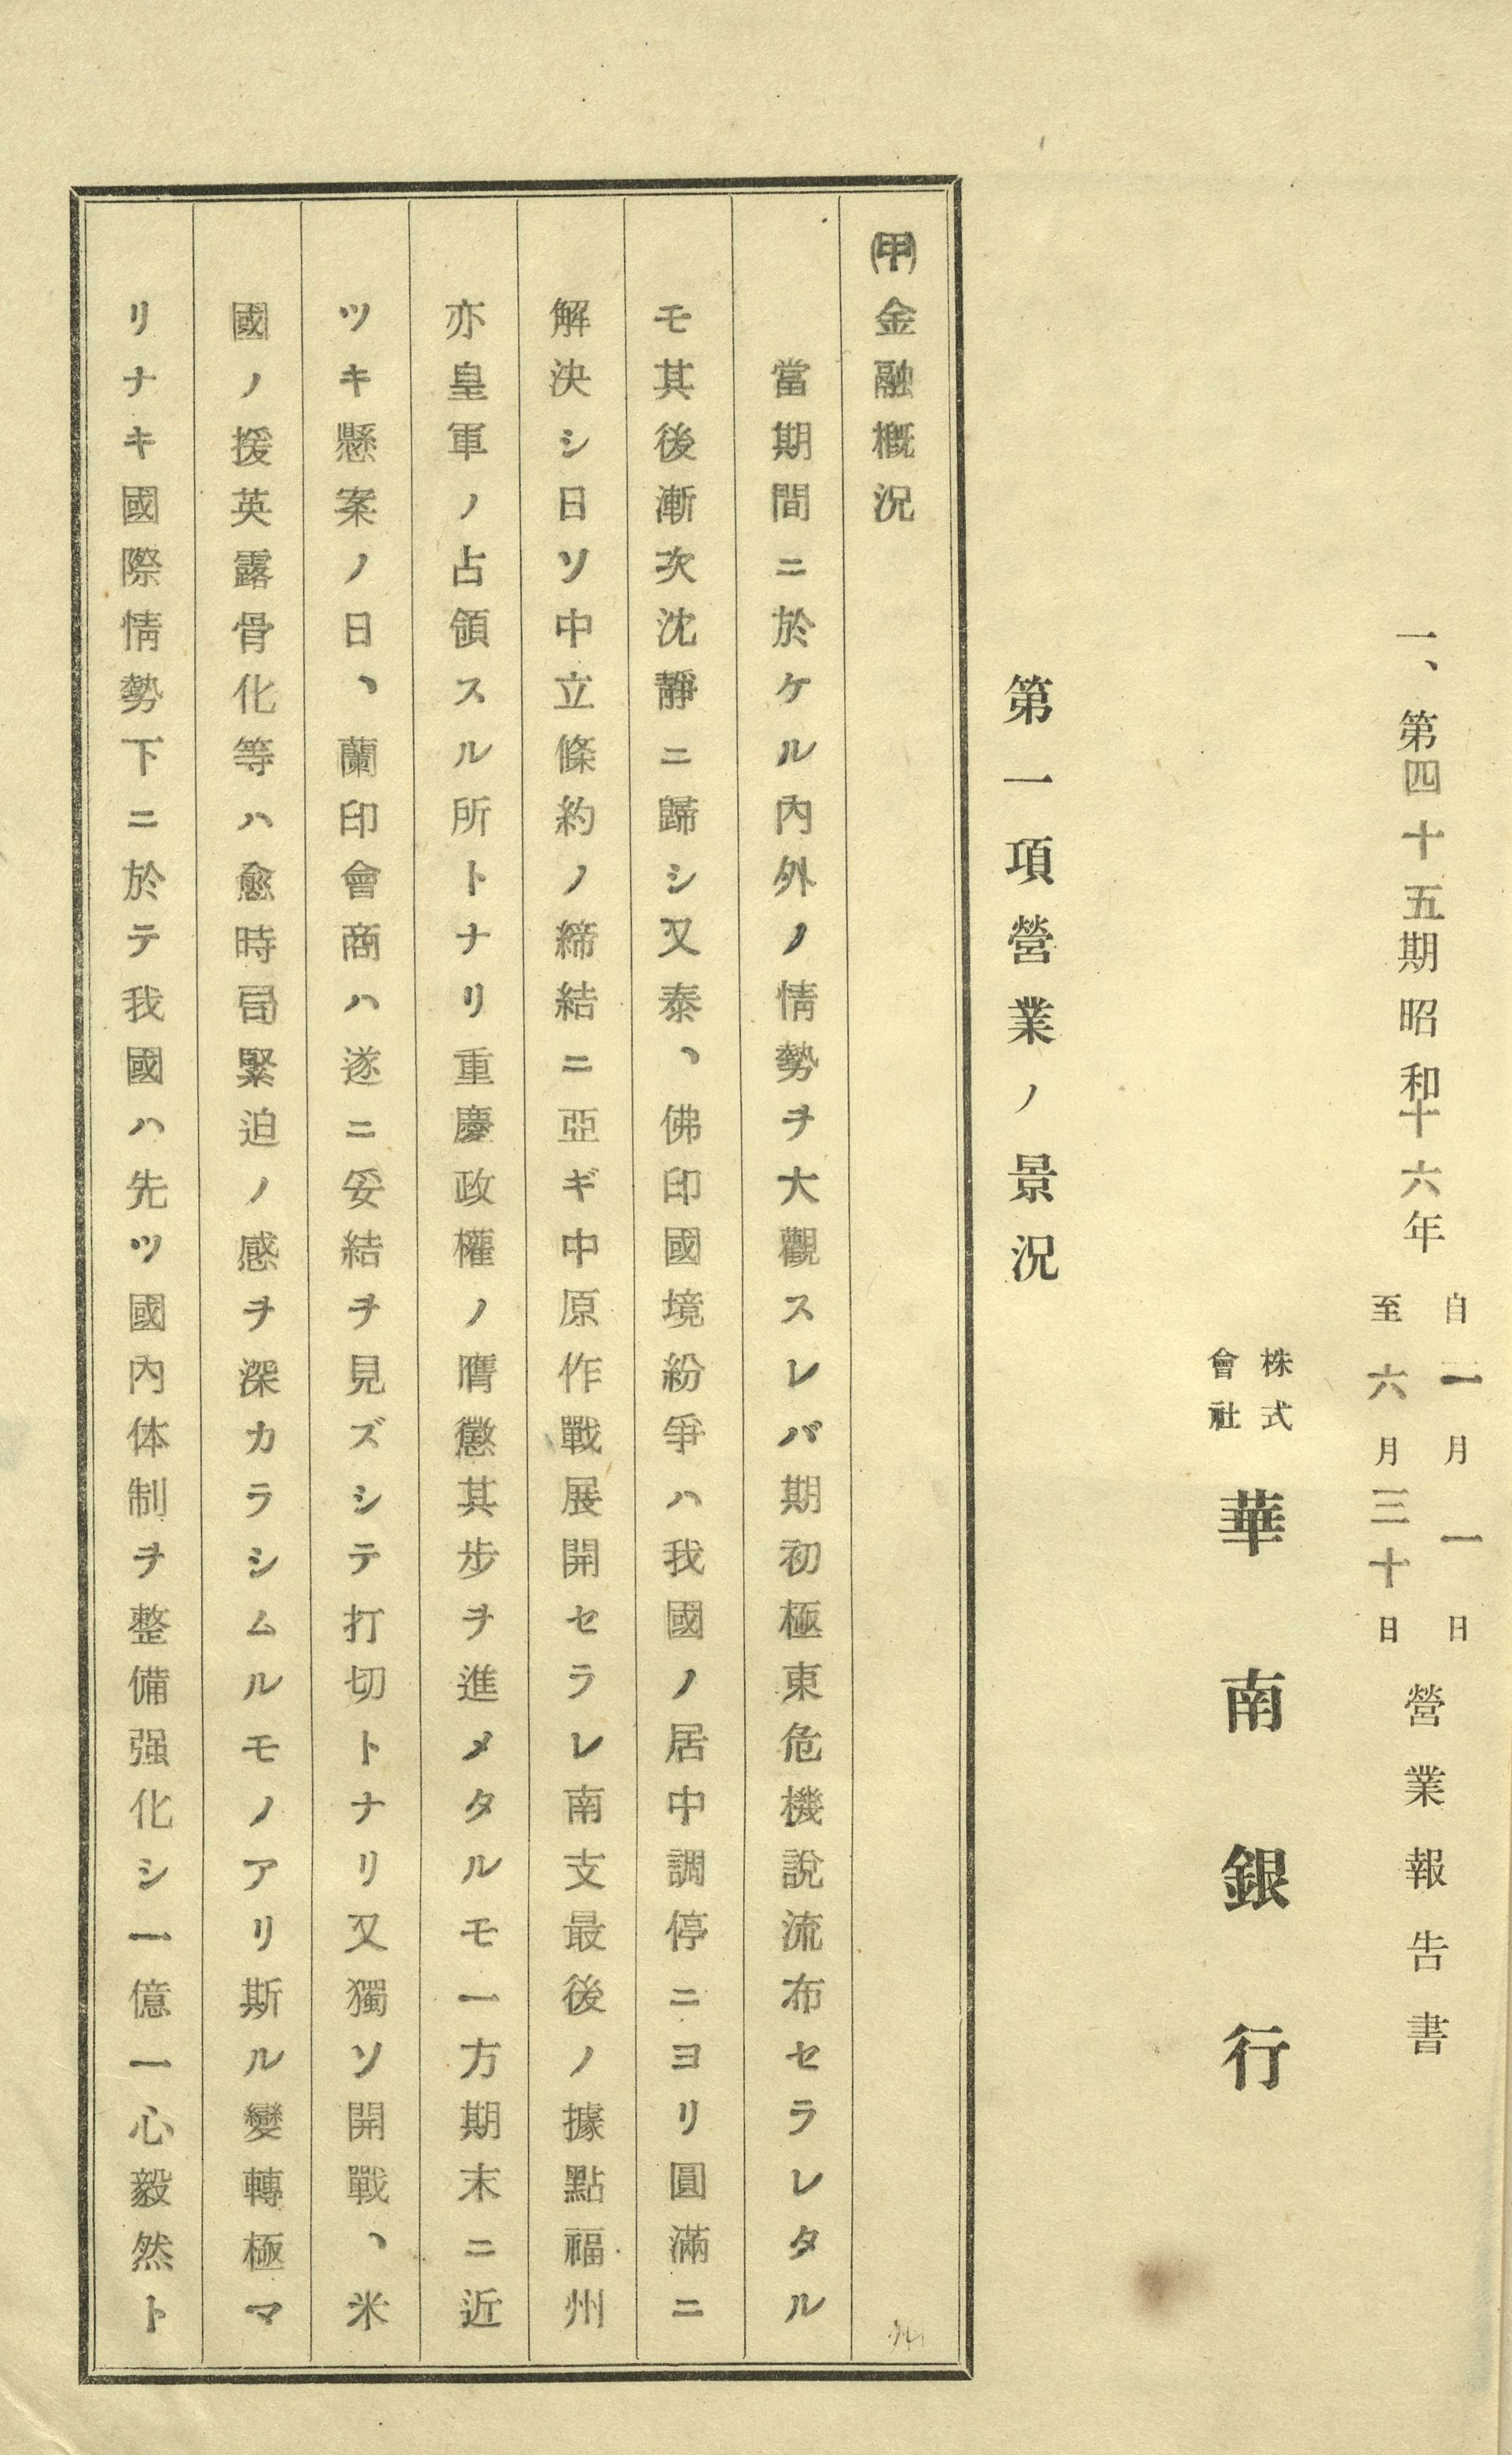 一、第四十五期昭和十六年自一月一日至六月三十日營業報告書
株式會社華南銀行
第一項營業ノ景況
㈙金融概況
當期間ニ於ケル內外ノ情勢ヲ大觀スレバ期初極東危機說流布セラレタル
モ其後漸次沈靜ニ歸シ又泰、佛印國境紛爭ハ我國ノ居中調停ニヨリ圓滿ニ
解決シ日ソ中立條約ノ締結ニ亞ギ中原作戰展開セラレ南支最後ノ據點福州
亦皇軍ノ占領スル所トナリ重慶政權ノ膺懲其步ヲ進メタルモ一方期末ニ近
ツキ懸案ノ日、蘭印會商ハ遂ニ妥結ヲ見ズシテ打切トナリ又獨ソ開戰、米
國ノ援英露骨化等ハ愈時局緊迫ノ感ヲ深カラシムルモノアリ斯ル變轉極マ
リナキ國際情勢下ニ於テ我國ハ先ツ國內体制ヲ整備强化シ一億一心毅然ト